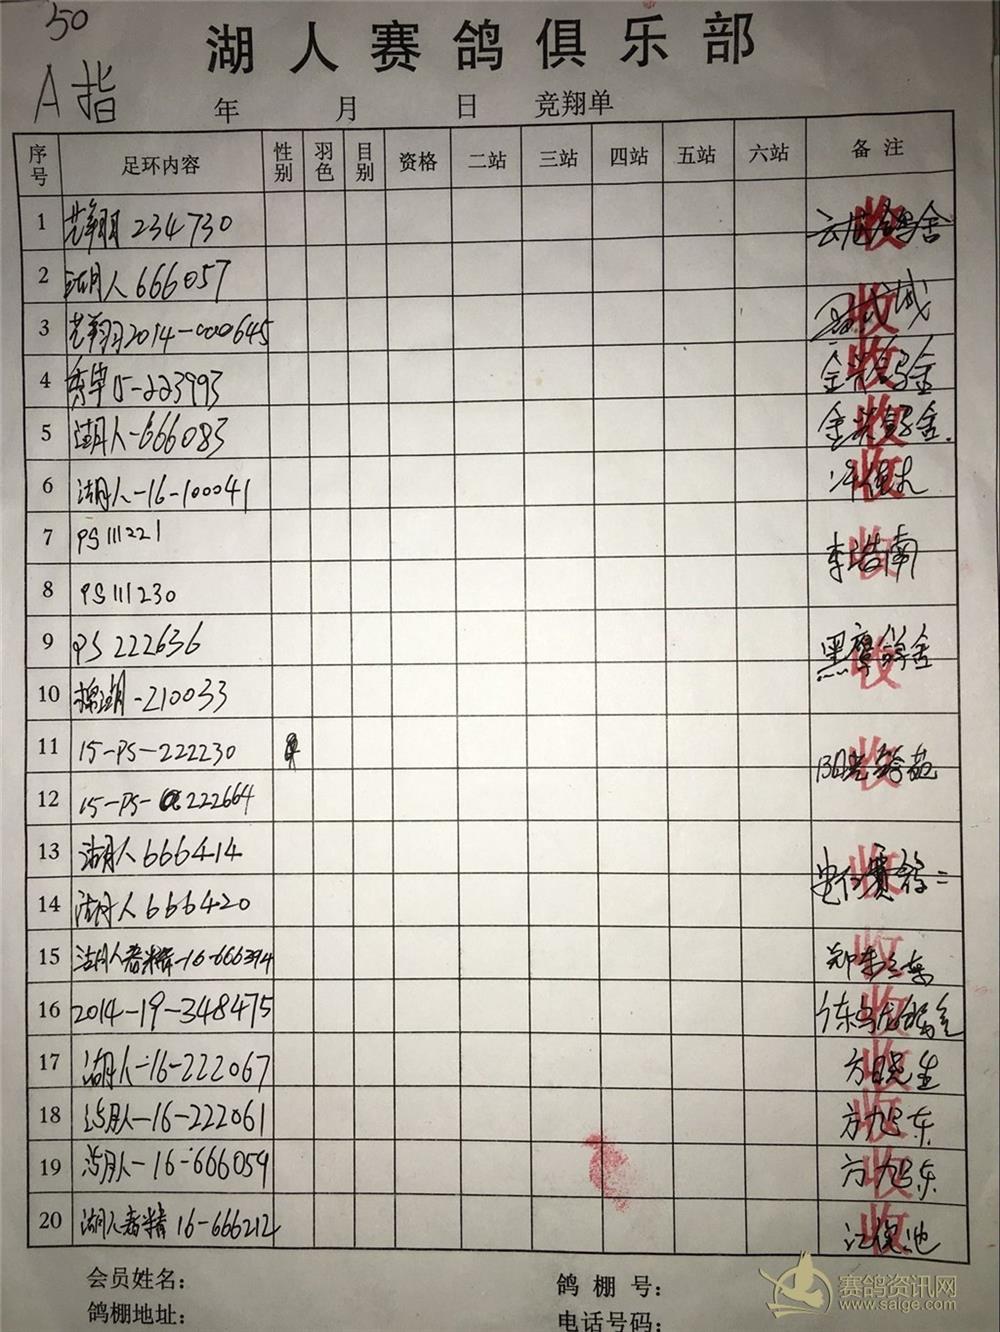 50
湖人赛鸽俱乐部
A指
年 月 日 竞翔单
序号 足环内容 性别 羽色 目别 资格 二站 三站 四站 五站 六站 备注
1 234730 收
2 湖人666057
3 2014-000645 收
4 15-223993 收
5 湖人-666083 收
6 湖人-16-100041 收
7 PS111221 李浩南 收
8 PS111230
9 PS222636 黑鹰鸽舍 收
10 棉湖-210033
11 15-PS-222230 收
12 15-PS-222664
13 湖人666414 收
14 湖人666420
15 湖人 -16-666394 收
16 2014-19-348475 收
17 湖人-16-222067 方晓生 收
18 湖人-16-222061 方旭东 收
19 湖人-16-666059 方旭东 收
20 湖人 16-666212 江俊池 收
会员姓名： 鸽棚号：
鸽棚地址： 电话号码：
赛鸽资讯网
www.saige.com